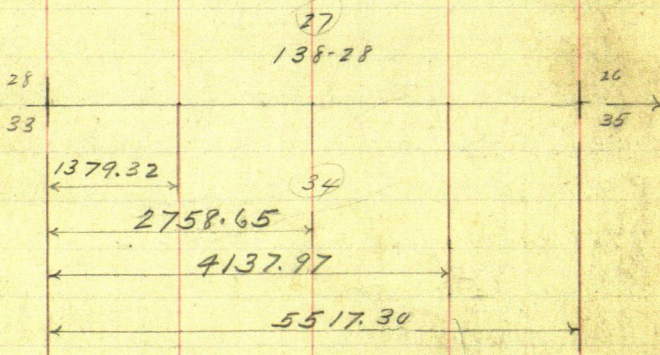 27
138-28
28
26
33
35
1379.32
34
2758.65
4137.97
5517.30